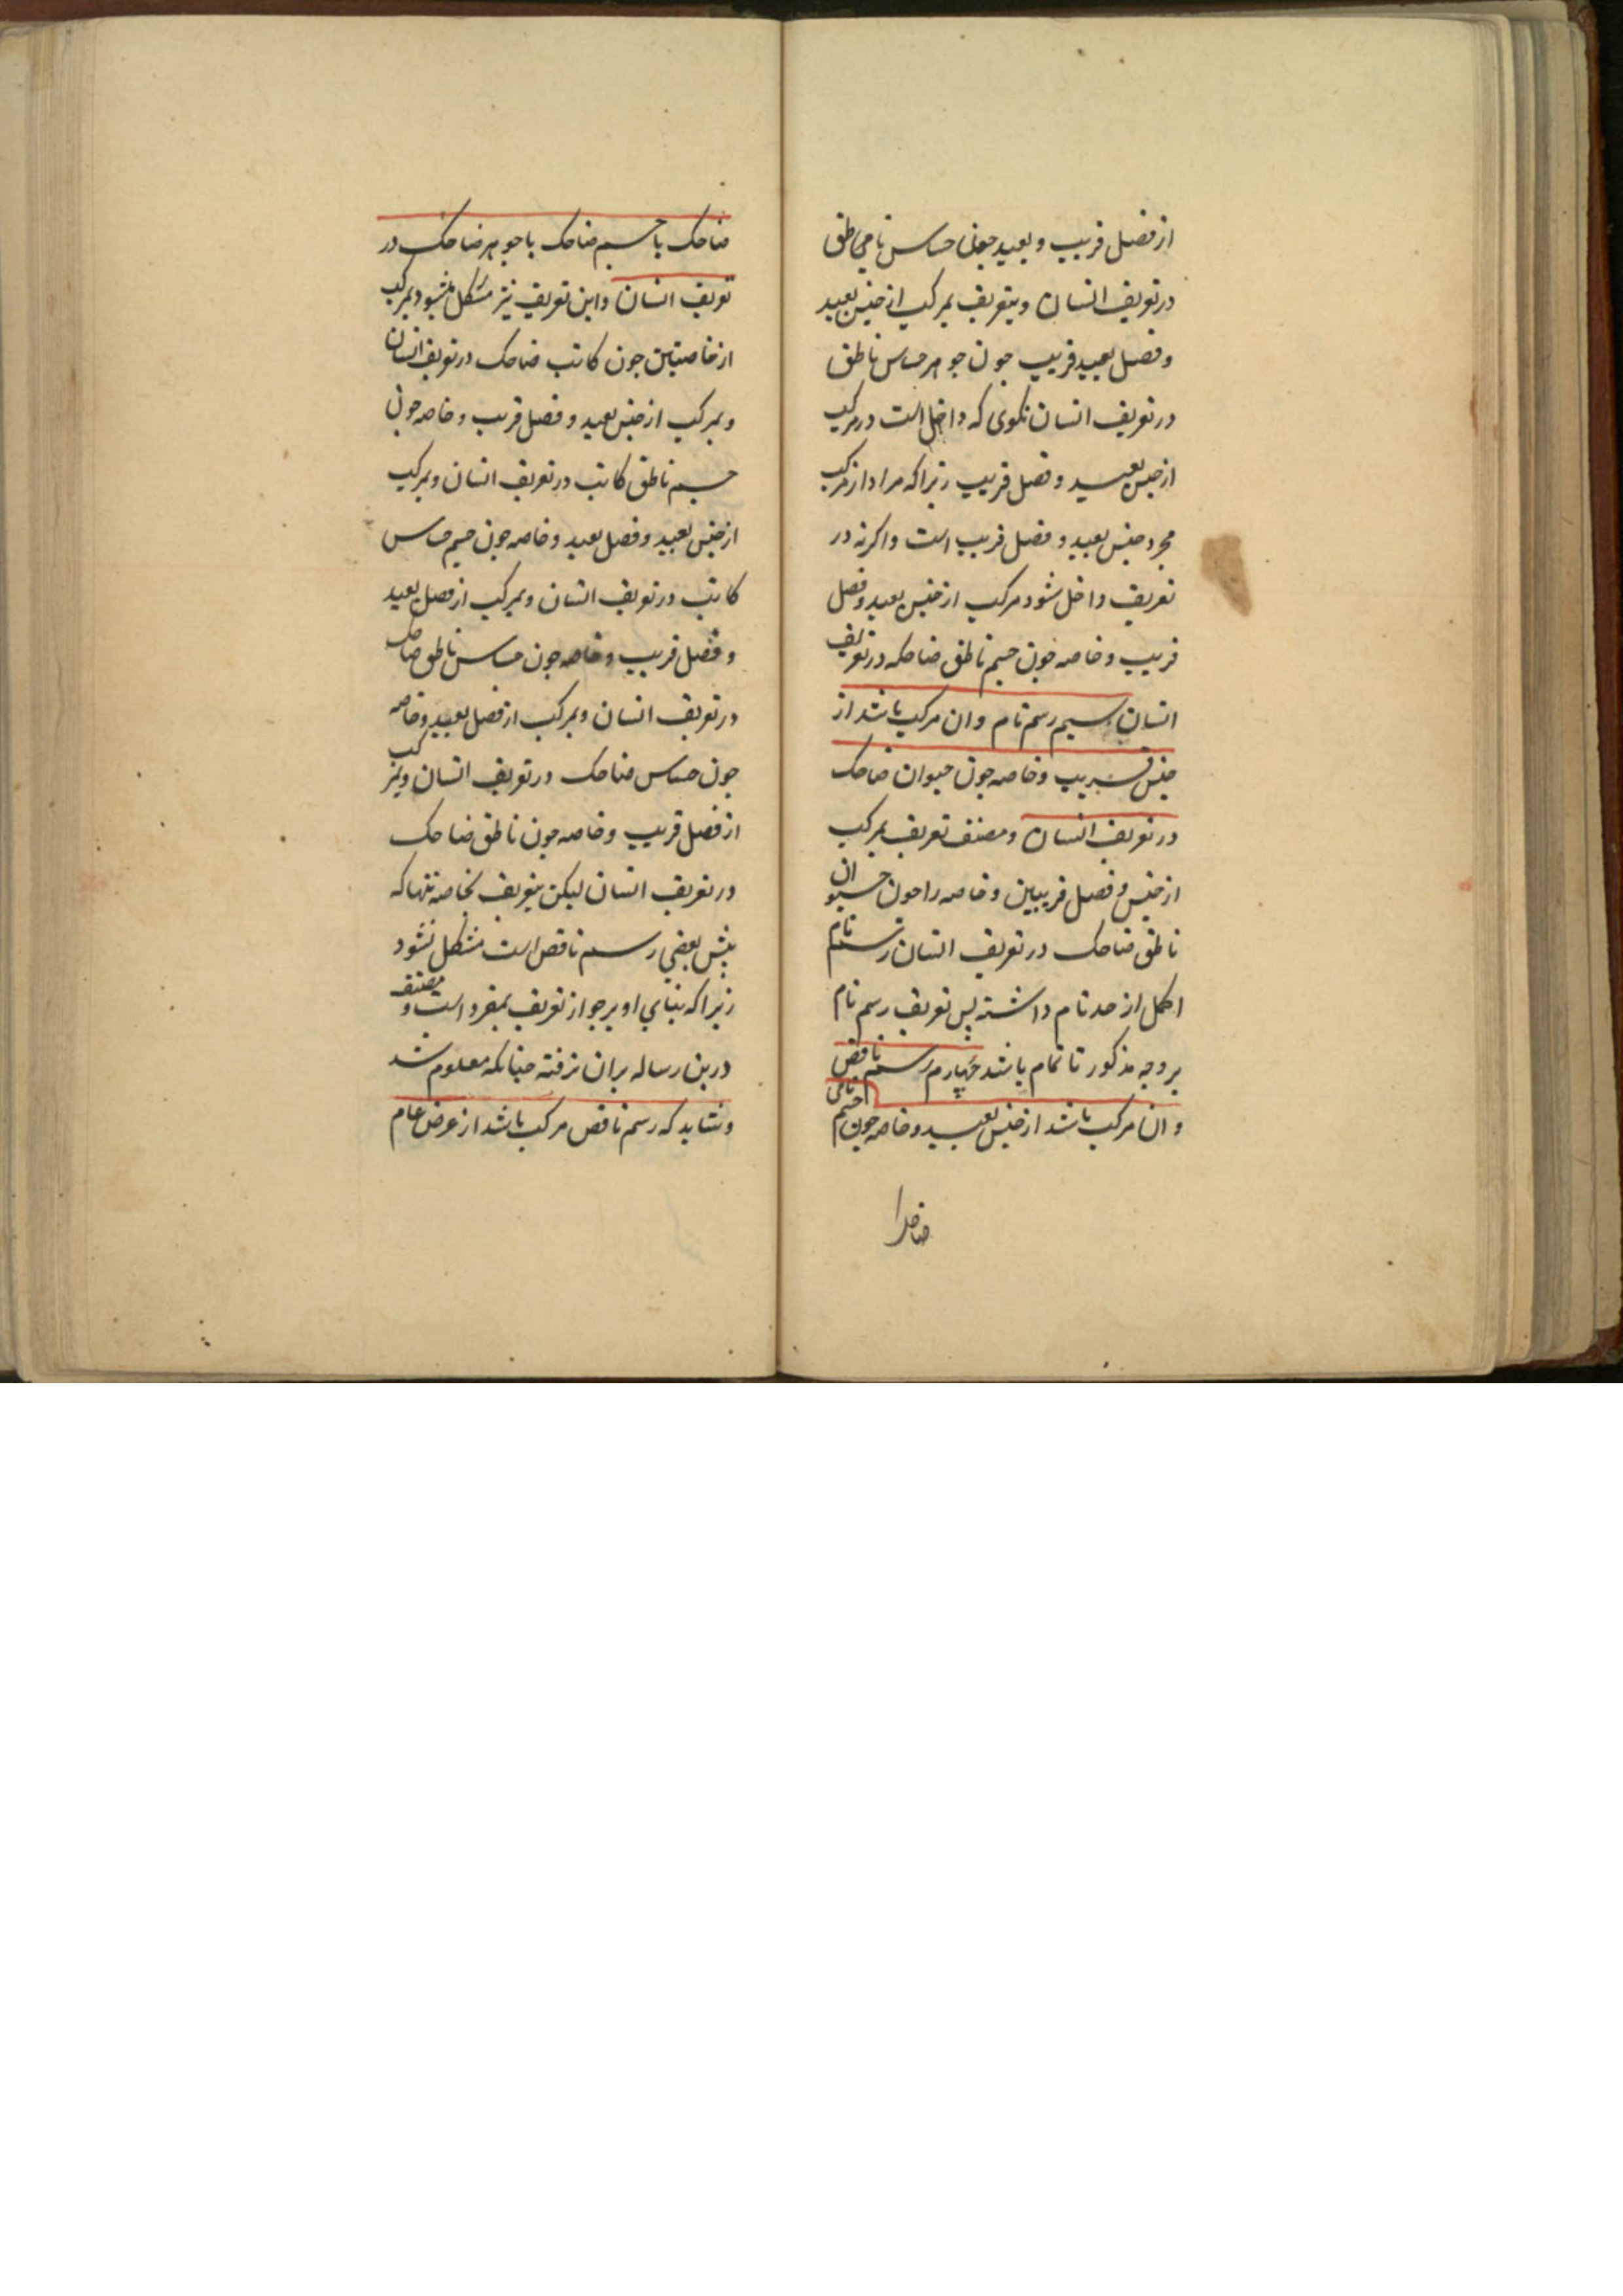 از فصل قریب و بعید چون حساس نامی ناطق
در تعریف انسان و بتعریف بمرکب از جنس بعید
و فصل بعید قریب چون جوهر حساس ناطق
در تعریف انسان نکوی که داخل است در مرکب
از جنس بعید و فصل قریب زیراکه مراد از مرکب
مجرد جنس بعید و فصل قریب است واکرنه در
تعریف داخل شود مرکب از جنس بعید و فصل
قریب و خاصه چون جسم ناطق ضاحکه در تعریف
انسان سیم رسم تام و ان مرکب باشد از
جنس قریب و خاصه چون حیوان ضاحک
در تعریف انسان و مصنف تعریف بمرکب
از جنس و فصل قریبین و خاصه را چون حیوان
ناطق ضاحک در تعریف انسان رسم تام
اکمل از حد تام داشته پس تعریف رسم تام
بر وجه مذکور تا تمام باشد چهارم رسم ناقص
و ان مرکب باشد از جنس بعید و خاصه چون جسم نامی
ضاحک یا جسم ضاحک یا جوهر ضاحک در
تعریف انسان و این تعریف نیز مشکل میشود بمرکب
از خاصیتین چون کاتب ضاحک در تعریف انسان
و بمرکب از جنس بعید و فصل قریب و خاصه چون
جسم ناطق کاتب در تعریف انسان و بمرکب
از جنس بعید و فصل بعید و خاصه چون جسم حساس
کاتب در تعریف انسان و بمرکب از فصل بعید
و فصل قریب و خاصه چون حساس ناطق ضاحک
در تعریف انسان و بمرکب از فصل بعید و خاصه
چون حساس ضاحک در تعریف انسان و بمرکب
از فصل قریب و خاصه چون ناطق ضاحک
در تعریف انسان لیکن بتعریف بخاصه تنها که
پیش بعضی رسم ناقص است مشکل نشود
زیراکه بنای او بر جواز تعریف بمفرد است و مصنف
درین رساله بران نرفته چنانکه معلوم شد
و نشاید که رسم ناقص مرکب باشد از عرض عام